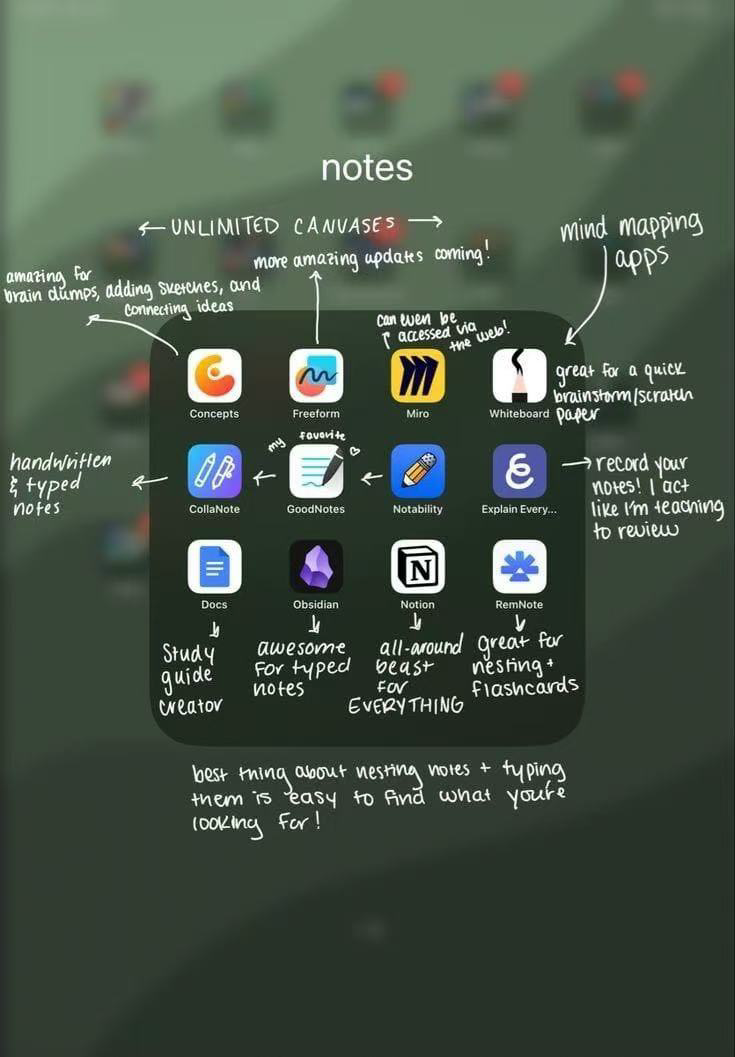 notes
← UNLIMITED CANVASES →
mind mapping
apps
more amazing updates coming!
amazing for
brain dumps, adding sketches, and
connecting ideas
can even be
accessed via
the web!
Concepts
Freeform
Miro
Whiteboard
great for a quick
brainstorm/scratch
paper
my favorite
handwritten
& typed
notes
CollaNote
GoodNotes
Notability
Explain Every...
record your
notes! I act
like I'm teaching
to review
Docs
Obsidian
Notion
RemNote
study
guide
creator
awesome
for typed
notes
all-around
beast
for
EVERYTHING
great for
nesting +
flashcards
best thing about nesting notes + typing
them is easy to find what you're
looking for!